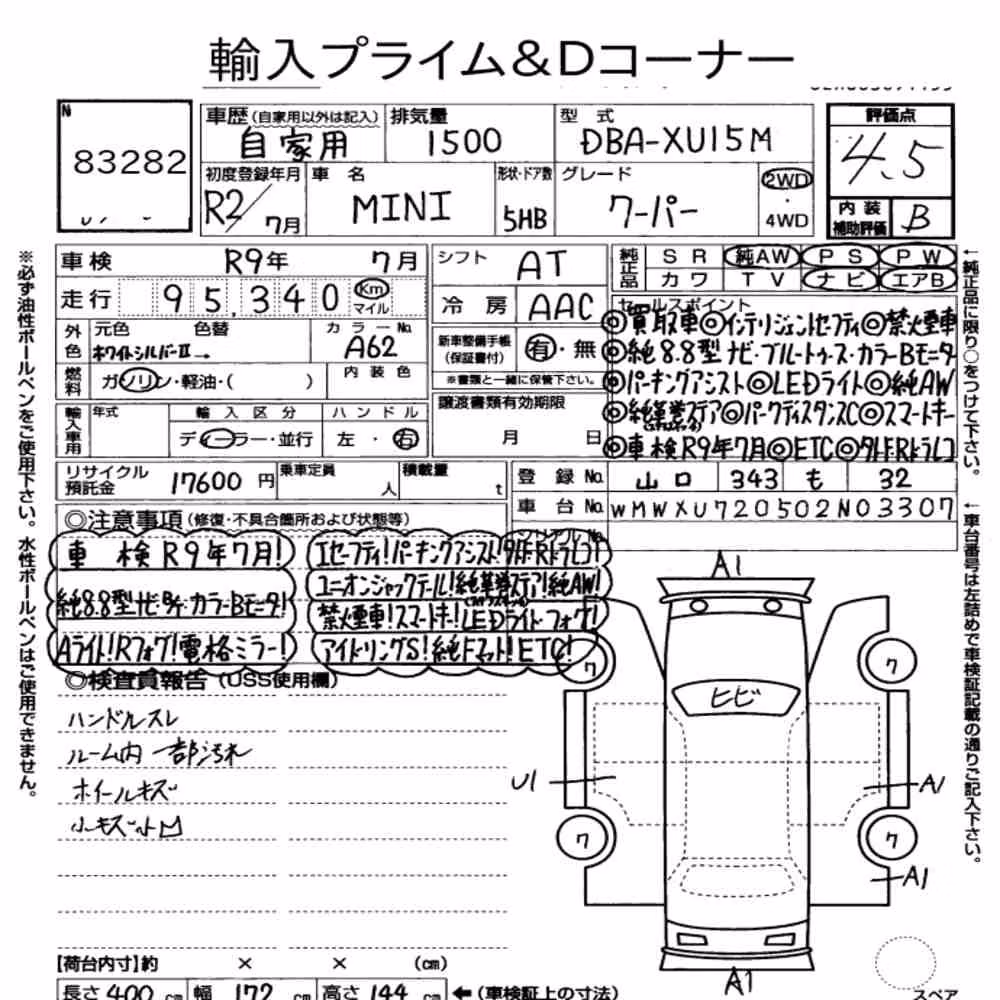 輸入プライム&Dコーナー
№
83282
車歴 (自家用以外は記入)
自家用
排気量
1500
型 式
DBA-XU15M
評価点
4.5
初度登録年月
R2/7月
車 名
MINI
形状・ドア数
5HB
グレード
クーパー
2WD
・
4WD
内 装
補助評価
B
車検 R9年 7月
シフト AT
純正品
SR 純AW PS PW
カワ TV ナビ エアB
走行 95,340 Km
マイル
冷房 AAC
外色
元色 色替
ホワイトシルバーII→
カラーNo.
A62
新車整備手帳
(保証書付)
有・無
※書類と一緒に保管下さい。
セールスポイント
◎買取車◎インテリジェントセーフティ◎禁煙車
◎純8.8型ナビ・ブルートゥース・カラーBモニタ
◎パーキングアシスト◎LEDライト◎純AW
◎純革巻ステア◎パークディスタンスC◎スマートキー
◎車検R9年7月◎ETC◎タドRドラレコ
燃料
ガソリン・軽油・( )
内装色
輸入車用
年式
輸入区分
ディーラー・並行
ハンドル
左・右
譲渡書類有効期限
月 日
リサイクル
預託金
17600 円
乗車定員
人
積載量
t
登録No. 山口 343 も 32
車台No. WMWXU720502N03307
◎注意事項 (修復・不具合箇所および状態等)
車 検R9年7月!
純8.8型ナビ・カラーBモニタ!
Aライト!Rフォグ!電格ミラー!
Iセーフティ!パーキングアシスト!
ユニオンジャックテール!純革巻ステア!純AW!
禁煙車!スマートキー!LEDライト・フォグ!
アイドリングS!純Fマット!ETC!
◎検査員報告 (USS使用欄)
ハンドルスレ
ルーム内 一部汚れ
ホイールキズ
小キズ小凹
A1
ワ
ワ
ヒビ
U1
A1
ワ
ワ
A1
A1
スペア
【荷台内寸】約 × × (cm)
長さ 400 cm 幅 172 cm 高さ 144 cm ←(車検証上の寸法)
※必ず油性ボールペンをご使用下さい。水性ボールペンはご使用できません。
←純正品に限り○をつけて下さい。
←車台番号は左詰めで車検証記載の通りご記入下さい。